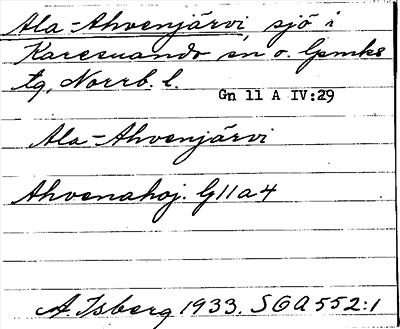 Ala-Ahvenjärvi, sjö i
Karesuando sn o. lpmks
tg, Norrb. l.
Gn 11 A IV:29
Ala-Ahvenjärvi
Ahvenahoj. G11a4
A. Isberg 1933. SGA 552:1